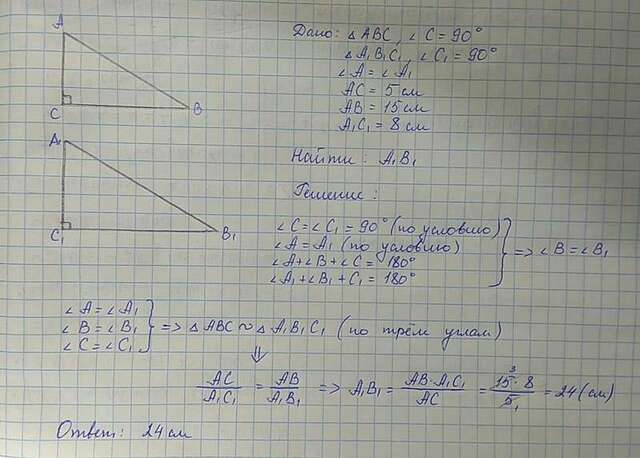 A
C
B
A₁
C₁
B₁
Дано: △ABC, ∠C = 90°
△A₁B₁C₁, ∠C₁ = 90°
∠A = ∠A₁
AC = 5 см
AB = 15 см
A₁C₁ = 8 см
Найти: A₁B₁
Решение:
∠C = ∠C₁ = 90° (по условию)
∠A = A₁ (по условию)
∠A + ∠B + ∠C = 180°
∠A₁ + ∠B₁ + C₁ = 180°
=> ∠B = ∠B₁
∠A = ∠A₁
∠B = ∠B₁
∠C = ∠C₁
=> △ABC ~ △A₁B₁C₁ (по трём углам)
⇓
AC/A₁C₁ = AB/A₁B₁ => A₁B₁ = AB·A₁C₁/AC = 15³·8/5₁ = 24 (см)
Ответ: 24 см